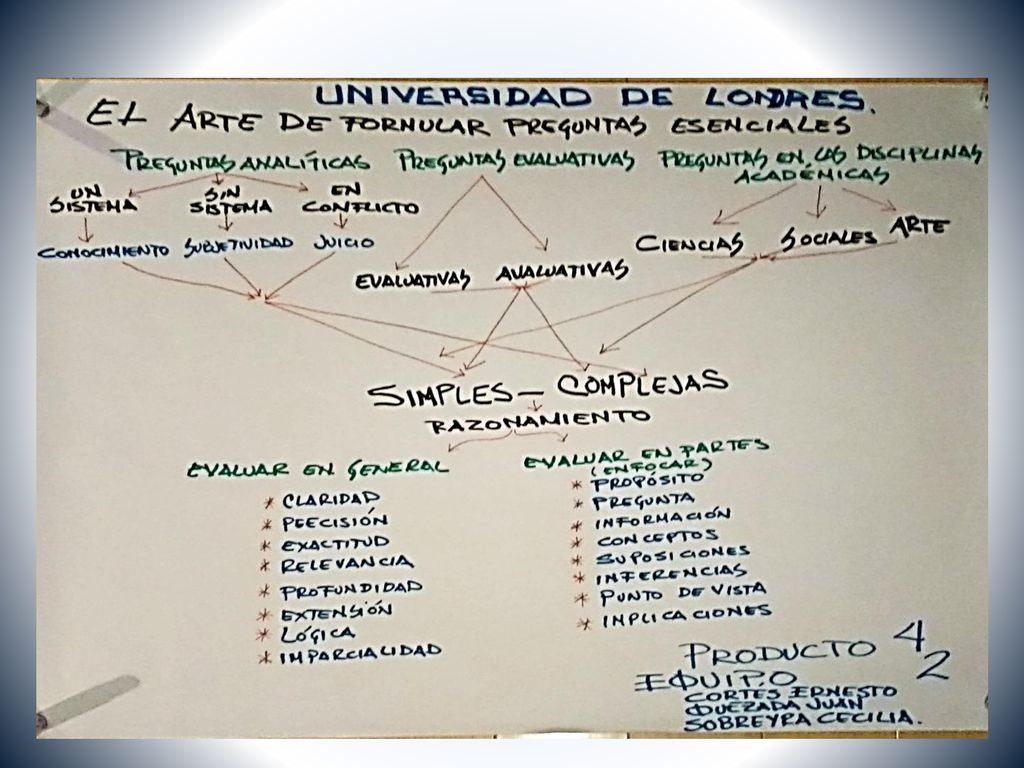 UNIVERSIDAD DE LONDRES.
EL ARTE DE FORNULAR PREGUNTAS ESENCIALES
PREGUNTAS ANALÍTICAS PREGUNTAS EVALUATIVAS PREGUNTAS EN LAS DISCIPLINAS
ACADÉMICAS
UN SISTEMA
SIN SISTEMA
EN CONFLICTO
CONOCIMIENTO SUBJETIVIDAD JUICIO
CIENCIAS SOCIALES ARTE
EVALUATIVAS AVALUATIVAS
SIMPLES - COMPLEJAS
RAZONAMIENTO
EVALUAR EN GENERAL
* CLARIDAD
* PRECISIÓN
* EXACTITUD
* RELEVANCIA
* PROFUNDIDAD
* EXTENSIÓN
* LÓGICA
* IMPARCIALIDAD
EVALUAR EN PARTES
(ENFOCAR)
* PROPÓSITO
* PREGUNTA
* INFORMACIÓN
* CONCEPTOS
* SUPOSICIONES
* INFERENCIAS
* PUNTO DE VISTA
* IMPLICACIONES
PRODUCTO 4
EQUIPO 2
CORTES ERNESTO
QUEZADA JUAN
SOBREYRA CECILIA.